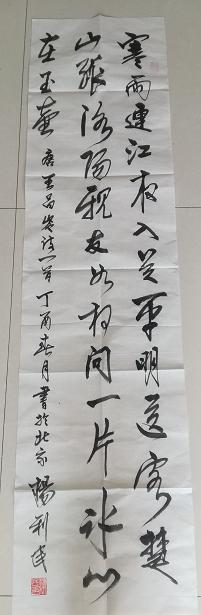 寒雨連江夜入吴平明送客楚
山孤洛陽親友如相問一片冰心
在玉壺 唐王昌齡诗一首丁酉春月書於北京 楊利